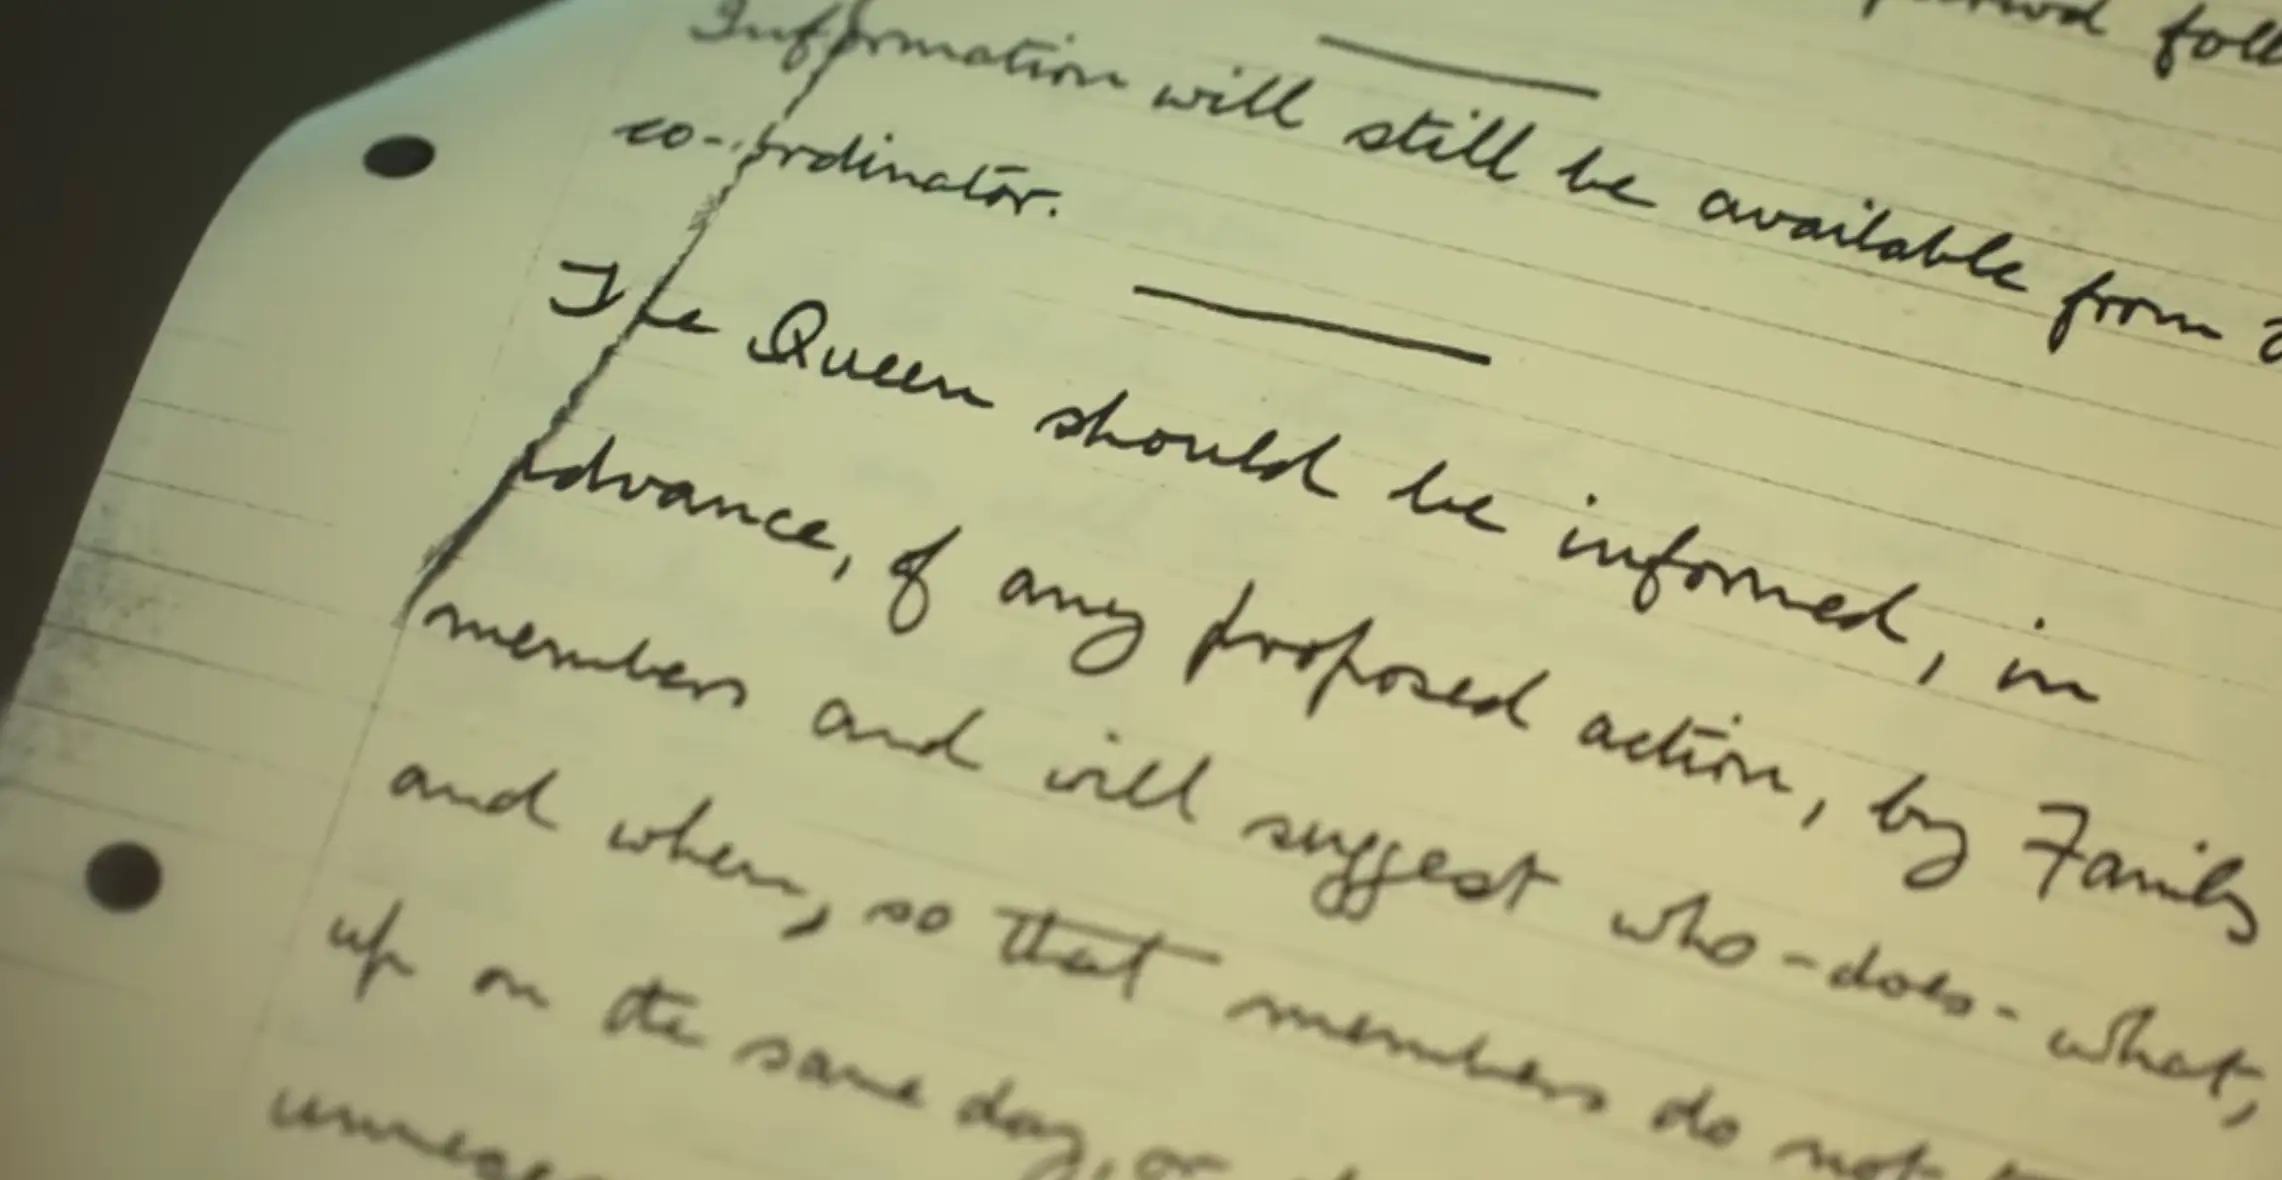 period foll
Information will still be available from
co-ordinator.
The Queen should be informed, in
advance, of any proposed action, by Family
members and will suggest who-does-what,
and when, so that members do not
up on the same day, or